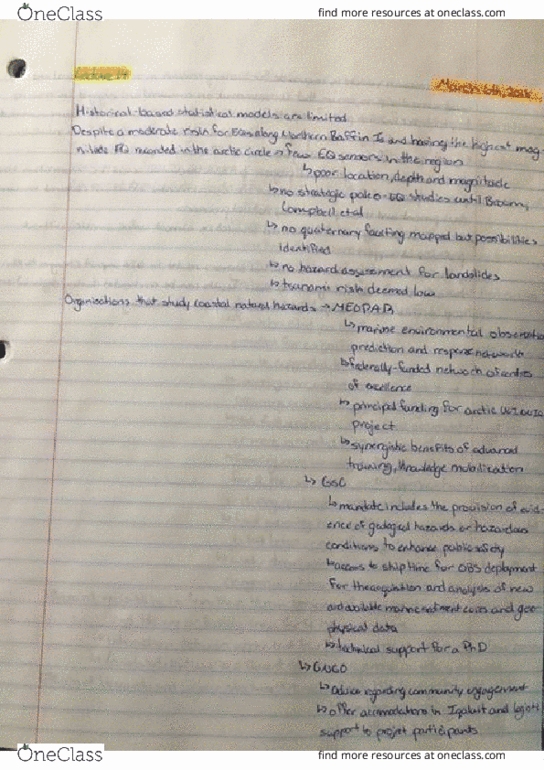 OneClass
find more resources at oneclass.com
Lecture 14
March 6th,
Historical-based statistical models are limited
Despite a moderate risk for EQs along Northern Baffin Is and having the highest mag-
nitude EQ recorded in the arctic circle → few EQ sensors in the region
↳ poor location, depth and magnitude
↳ no strategic paleo-EQ studies until
Campbell et al
↳ no quaternary faulting mapped but possibilities
identified
↳ no hazard assessment for landslides
↳ tsunami risk deemed low
Organisations that study coastal natural hazards → MEOPAR
↳ marine environmental observation
prediction and response network
↳ federally-funded network of centres
of excellence
↳ principal funding for arctic
project
↳ synergistic benefits of advanced
training, knowledge mobilization
↳ GSC
↳ mandate includes the provision of evid-
ence of geological hazards or hazardous
conditions to enhance public safety
↳ access to ship time for OBS deployment
for the acquisition and analysis of new
and available marine sediment cores and geo-
physical data
↳ technical support for a PhD
↳
↳ advice regarding community engagement
↳ offer accomodations in Iqaluit and
support to project participants
OneClass
find more resources at oneclass.com